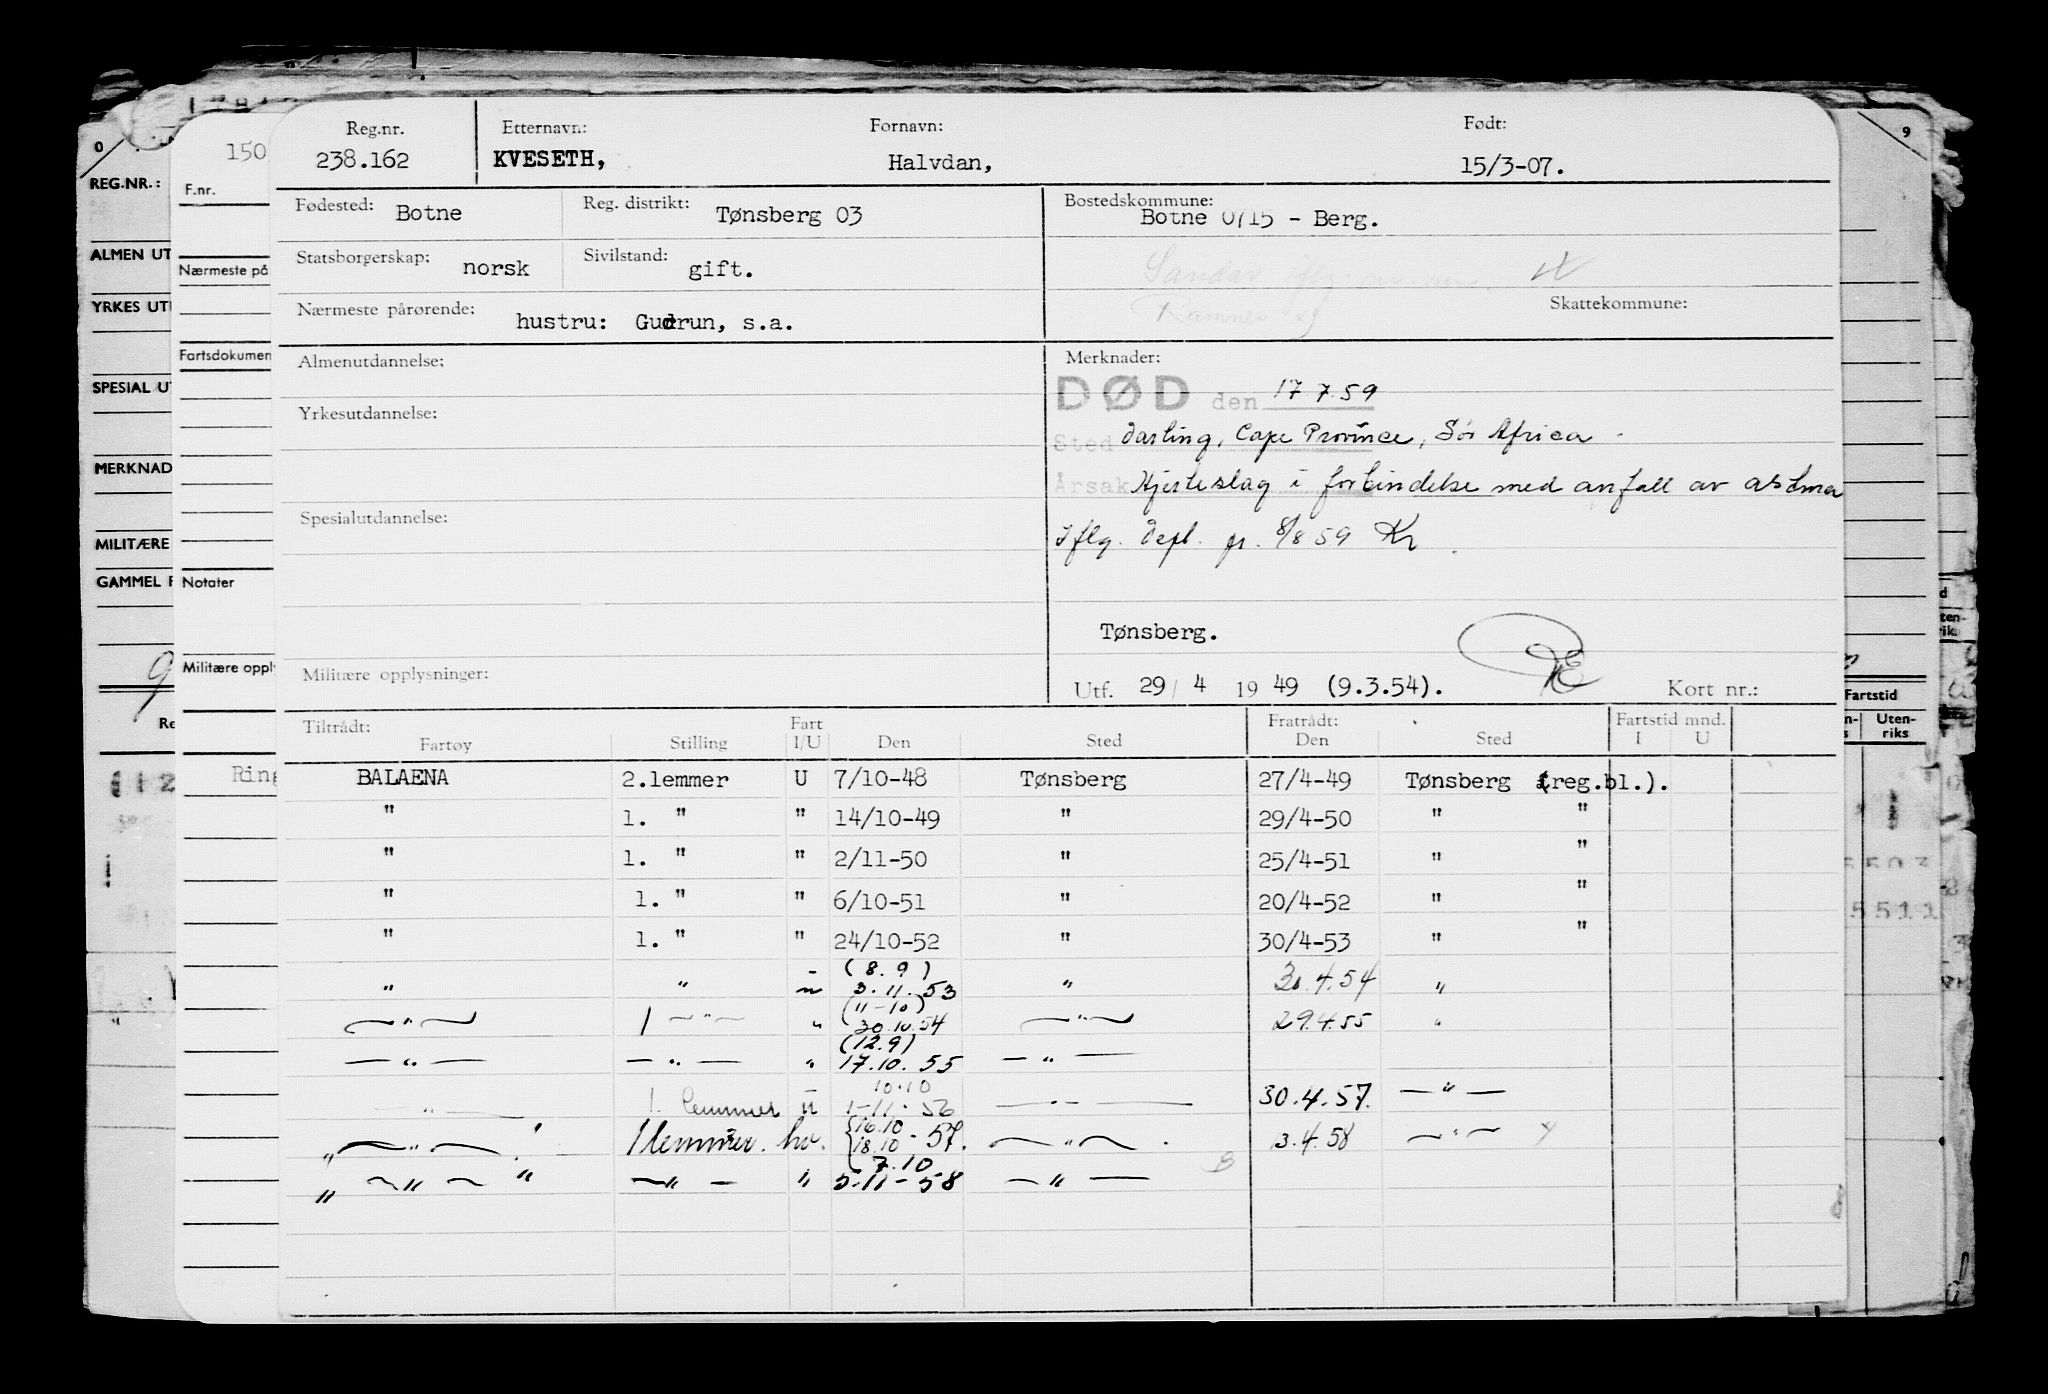 Reg.nr. Etternavn: Fornavn: Født:
150 238.162 KVESETH, Halvdan, 15/3-07.
0 9
REG.NR.:
F.nr.
Fødested: Botne Reg. distrikt: Tønsberg 03 Bostedskommune:
Botne 0715 - Berg.
ALMEN UT
Nærmeste på
Statsborgerskap: norsk Sivilstand: gift.
Sandar
YRKES UT
Nærmeste pårørende: hustru: Gudrun, s.a. Ramnes Skattekommune:
Fartsdokumen
Almenutdannelse: Merknader:
SPESIAL UT
DØD den 17.7.59
Yrkesutdannelse:
Sted Darling, Cape Province, Sör Africa
MERKNAD
Årsak Hjerteslag i forbindelse med anfall av astma
Spesialutdannelse:
Iflg. Dept. pr. 8/8 59 Kr
MILITÆRE
GAMMEL F
Notater
Tønsberg.
Militære oppl
Militære opplysninger: Utf. 29/ 4 19 49 (9.3.54). Kort nr.:
Fartstid
Uten-
riks
Tiltrådt: Fart Fratrådt: Fartstid mnd.
Fartøy Stilling I/U Den Sted Den Sted I U
Ring
BALAENA 2.lemmer U 7/10-48 Tønsberg 27/4-49 Tønsberg (reg.bl.).
" 1. " " 14/10-49 " 29/4-50 " "
" 1. " " 2/11-50 " 25/4-51 " "
" 1. " " 6/10-51 " 20/4-52 " "
" 1. " " 24/10-52 " 30/4-53 " "
(8.9)
" " " 3.11.53 " 30.4.54 "
(11-10)
—"— 1 —"— " 30.10.54 —"— 29.4.55 "
(12.9)
—"— —"— " 17.10.55 —"—
10.10
—"— 1. lemmer U 1-11-56 —"— 30.4.57. —"—
16.10
"—"—" 1 lemmer. hv. 18.10-57. —"— 3.4.58 —"—
7.10
"—"—" —"— " 5.11-58 —"—
5503
5511